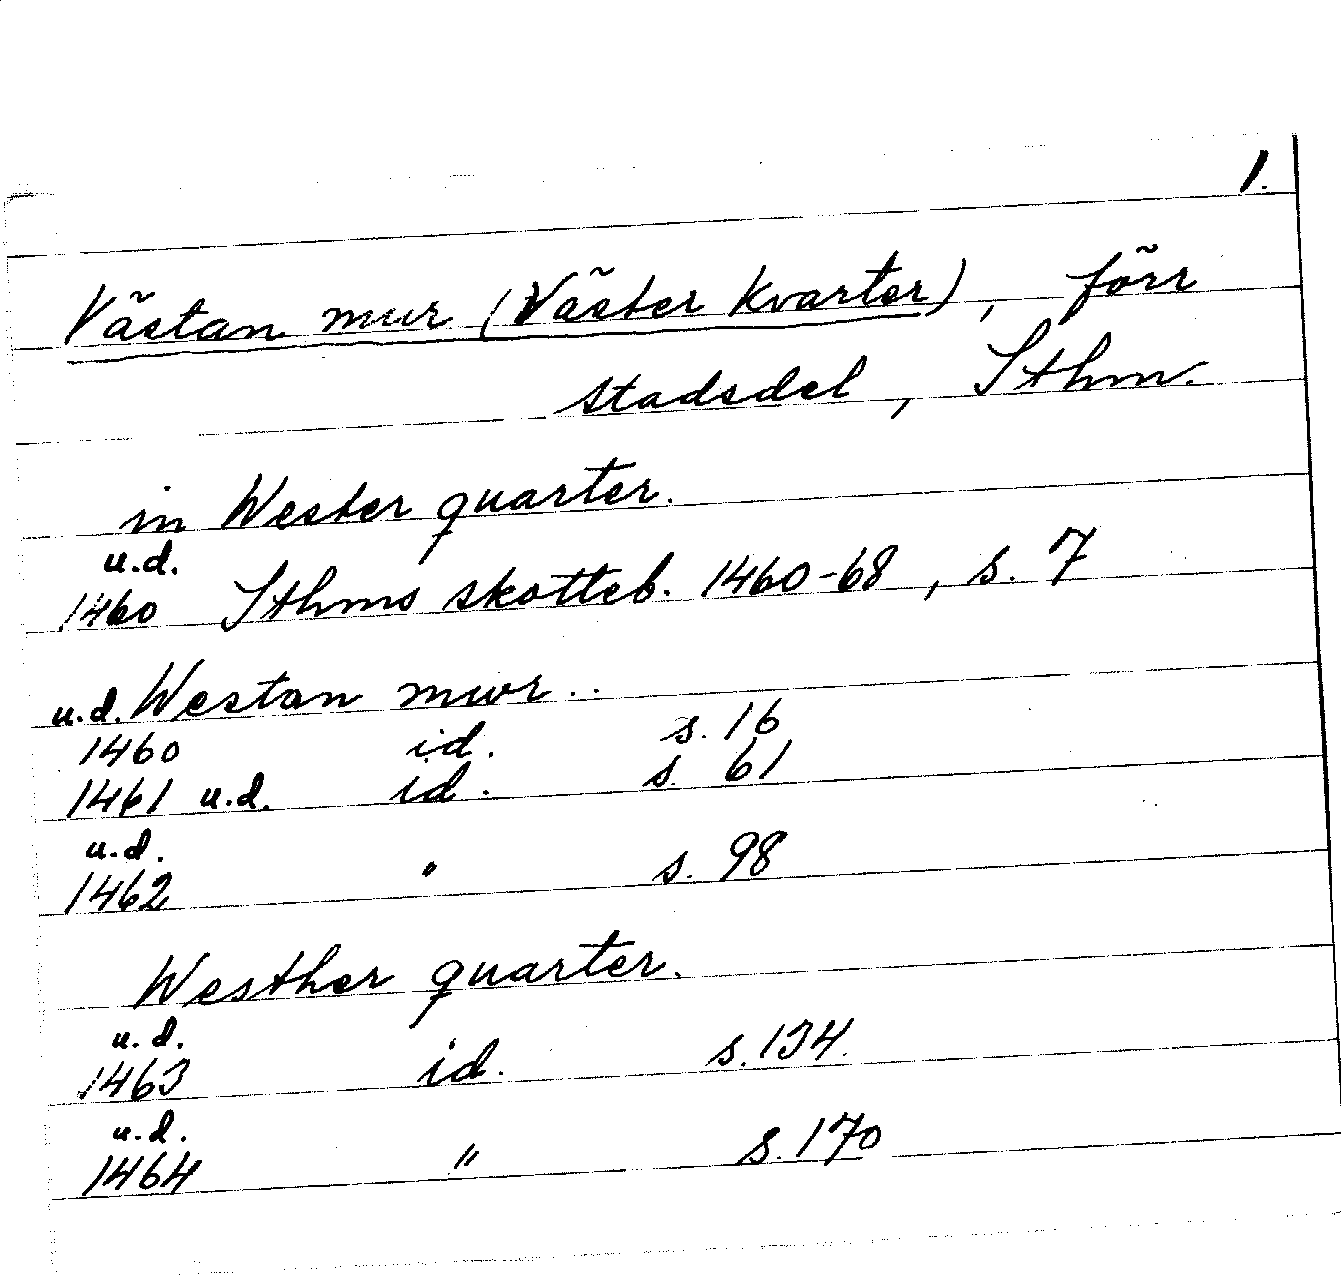 1.
Västan mur (Väster kvarter), förr
stadsdel, Sthm.
in Wester quarter.
u.d.
1460 Sthms skotteb. 1460-68, s. 7
u.d. Westan mwr..
1460 id. s. 16
1461 u.d. id. s. 61
u.d.
1462 " s. 98
Westher quarter.
u.d.
1463 id. s. 134.
u.d.
1464 " s. 170